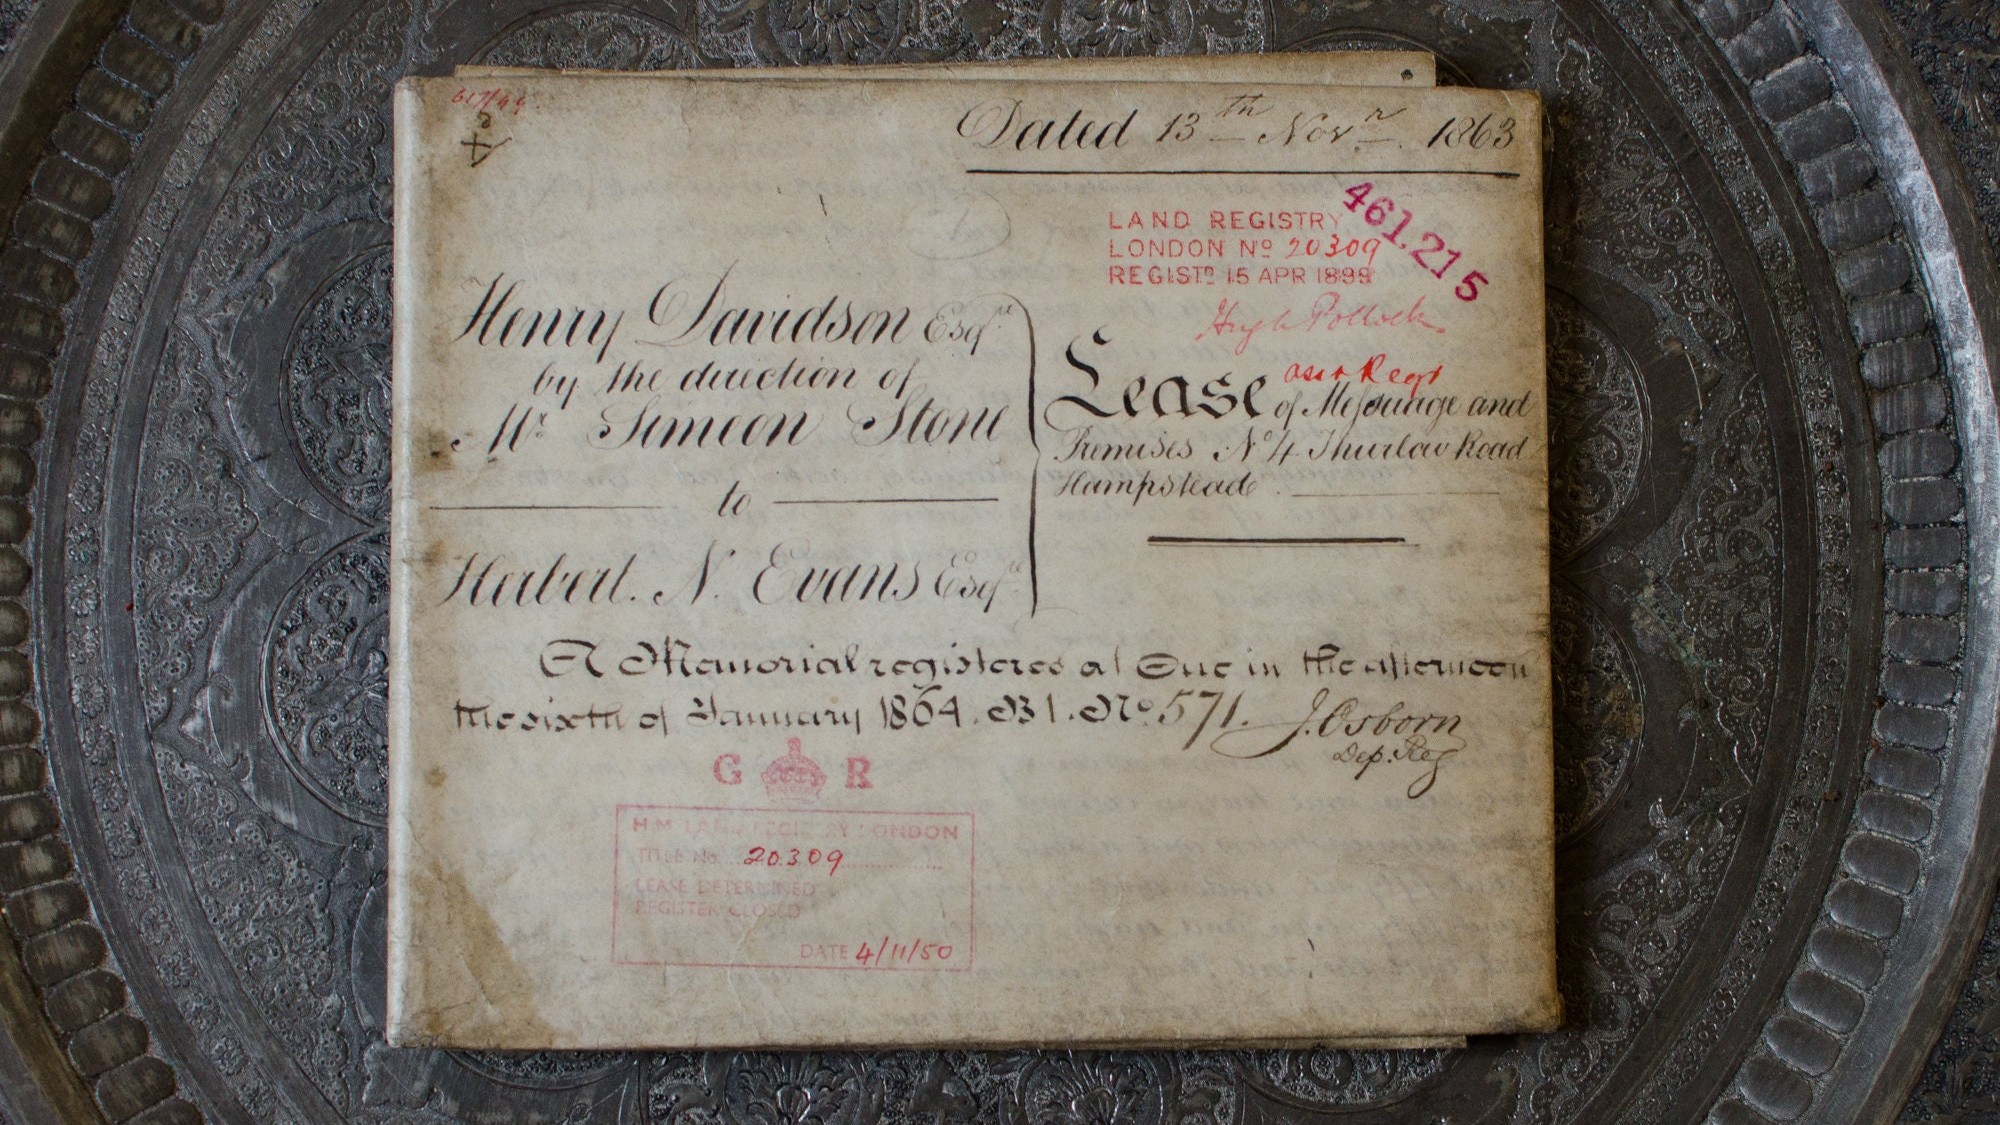 Dated 13th Novr. 1863
461.215
LAND REGISTRY
LONDON No 20309
REGISTD 15 APR 1899
Hugh Pollock
Henry Davidson Esqre
by the direction of
Mr Simeon Stone
to
Herbert. N. Evans Esqre
Lease of Messuage and
Premises No 4 Thurlow Road
Hampstead.
A Memorial registered at One in the afternoon
the sixth of January 1864. B 1. No. 571. J. Osborn
Dep. Reg
G R
H.M. LAND REGISTRY LONDON
TITLE No. 20309
LEASE DETERMINED
REGISTER CLOSED
DATE 4/11/50